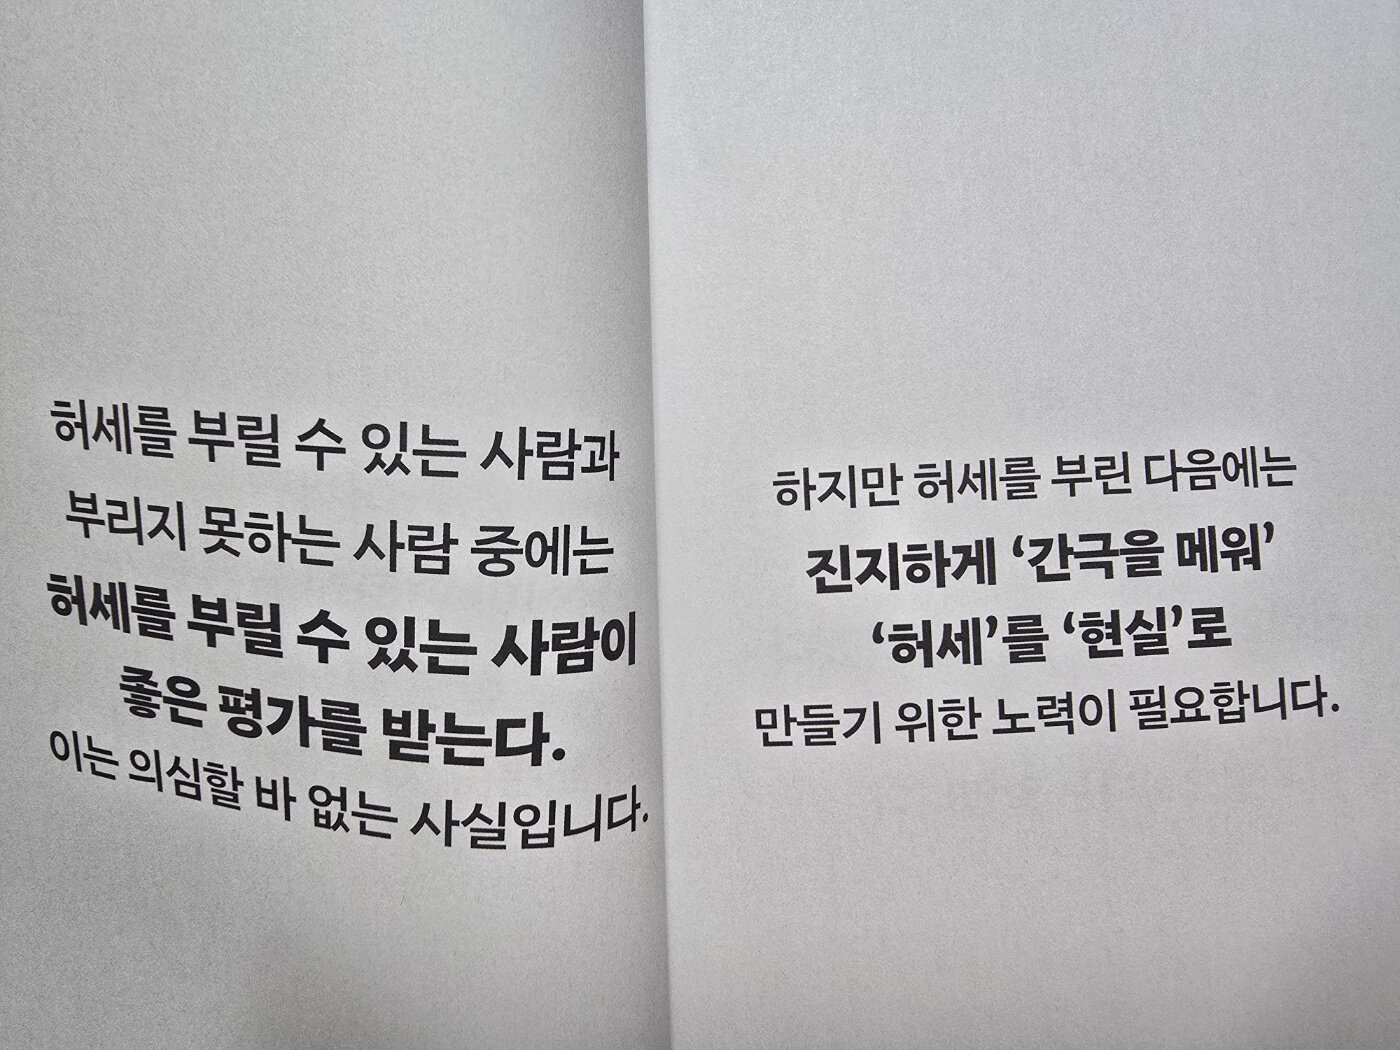 허세를 부릴 수 있는 사람과
부리지 못하는 사람 중에는
허세를 부릴 수 있는 사람이
좋은 평가를 받는다.
이는 의심할 바 없는 사실입니다.
하지만 허세를 부린 다음에는
진지하게 ‘간극을 메워’
‘허세’를 ‘현실’로
만들기 위한 노력이 필요합니다.